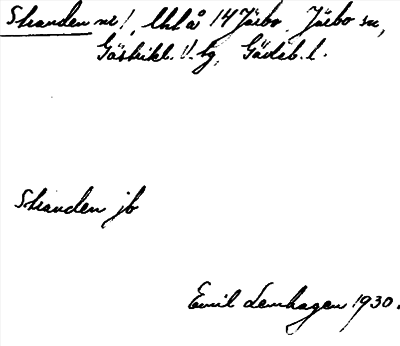 Stranden nr 1, Uhlå 14 Järbo, Järbo sn,
Gästrikl. V. tg, Gävleb. l.
Stranden jb
Emil Lemhagen 1930.